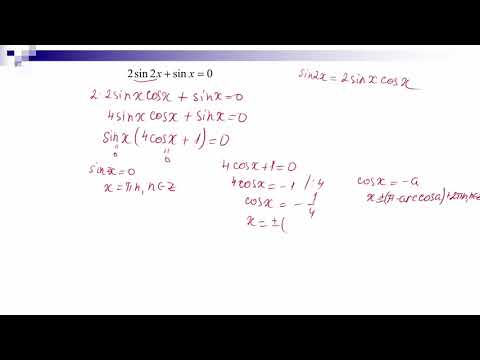 2 sin 2x + sin x = 0
sin2x = 2sinx cosx
2·2sinx cosx + sinx = 0
4sinx cosx + sinx = 0
sinx (4cosx + 1) = 0
" "
0 0
sinx = 0
x = πn, n ∈ z
4cosx + 1 = 0
4cosx = -1 /:4
cosx = - 1/4
x = ± (
cosx = -a
x = ±(π - arccosa) + 2πn, n∈z